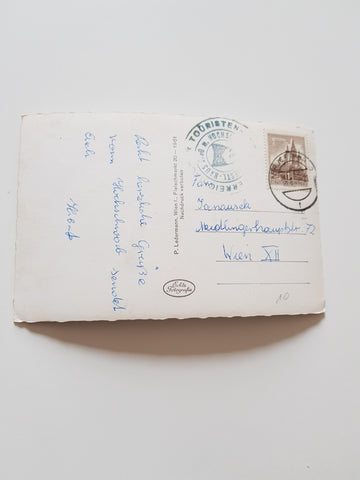 Recht herzliche Grüße
vom Hochschwab sendet
Euch
P. Ledermann, Wien I., Fleischmarkt 20 — 1961
Nachdruck verboten
Echte
Fotografie
TOURISTEN
Fam.
Janausek
Meidlingerhauptstr. 72
Wien XII
10